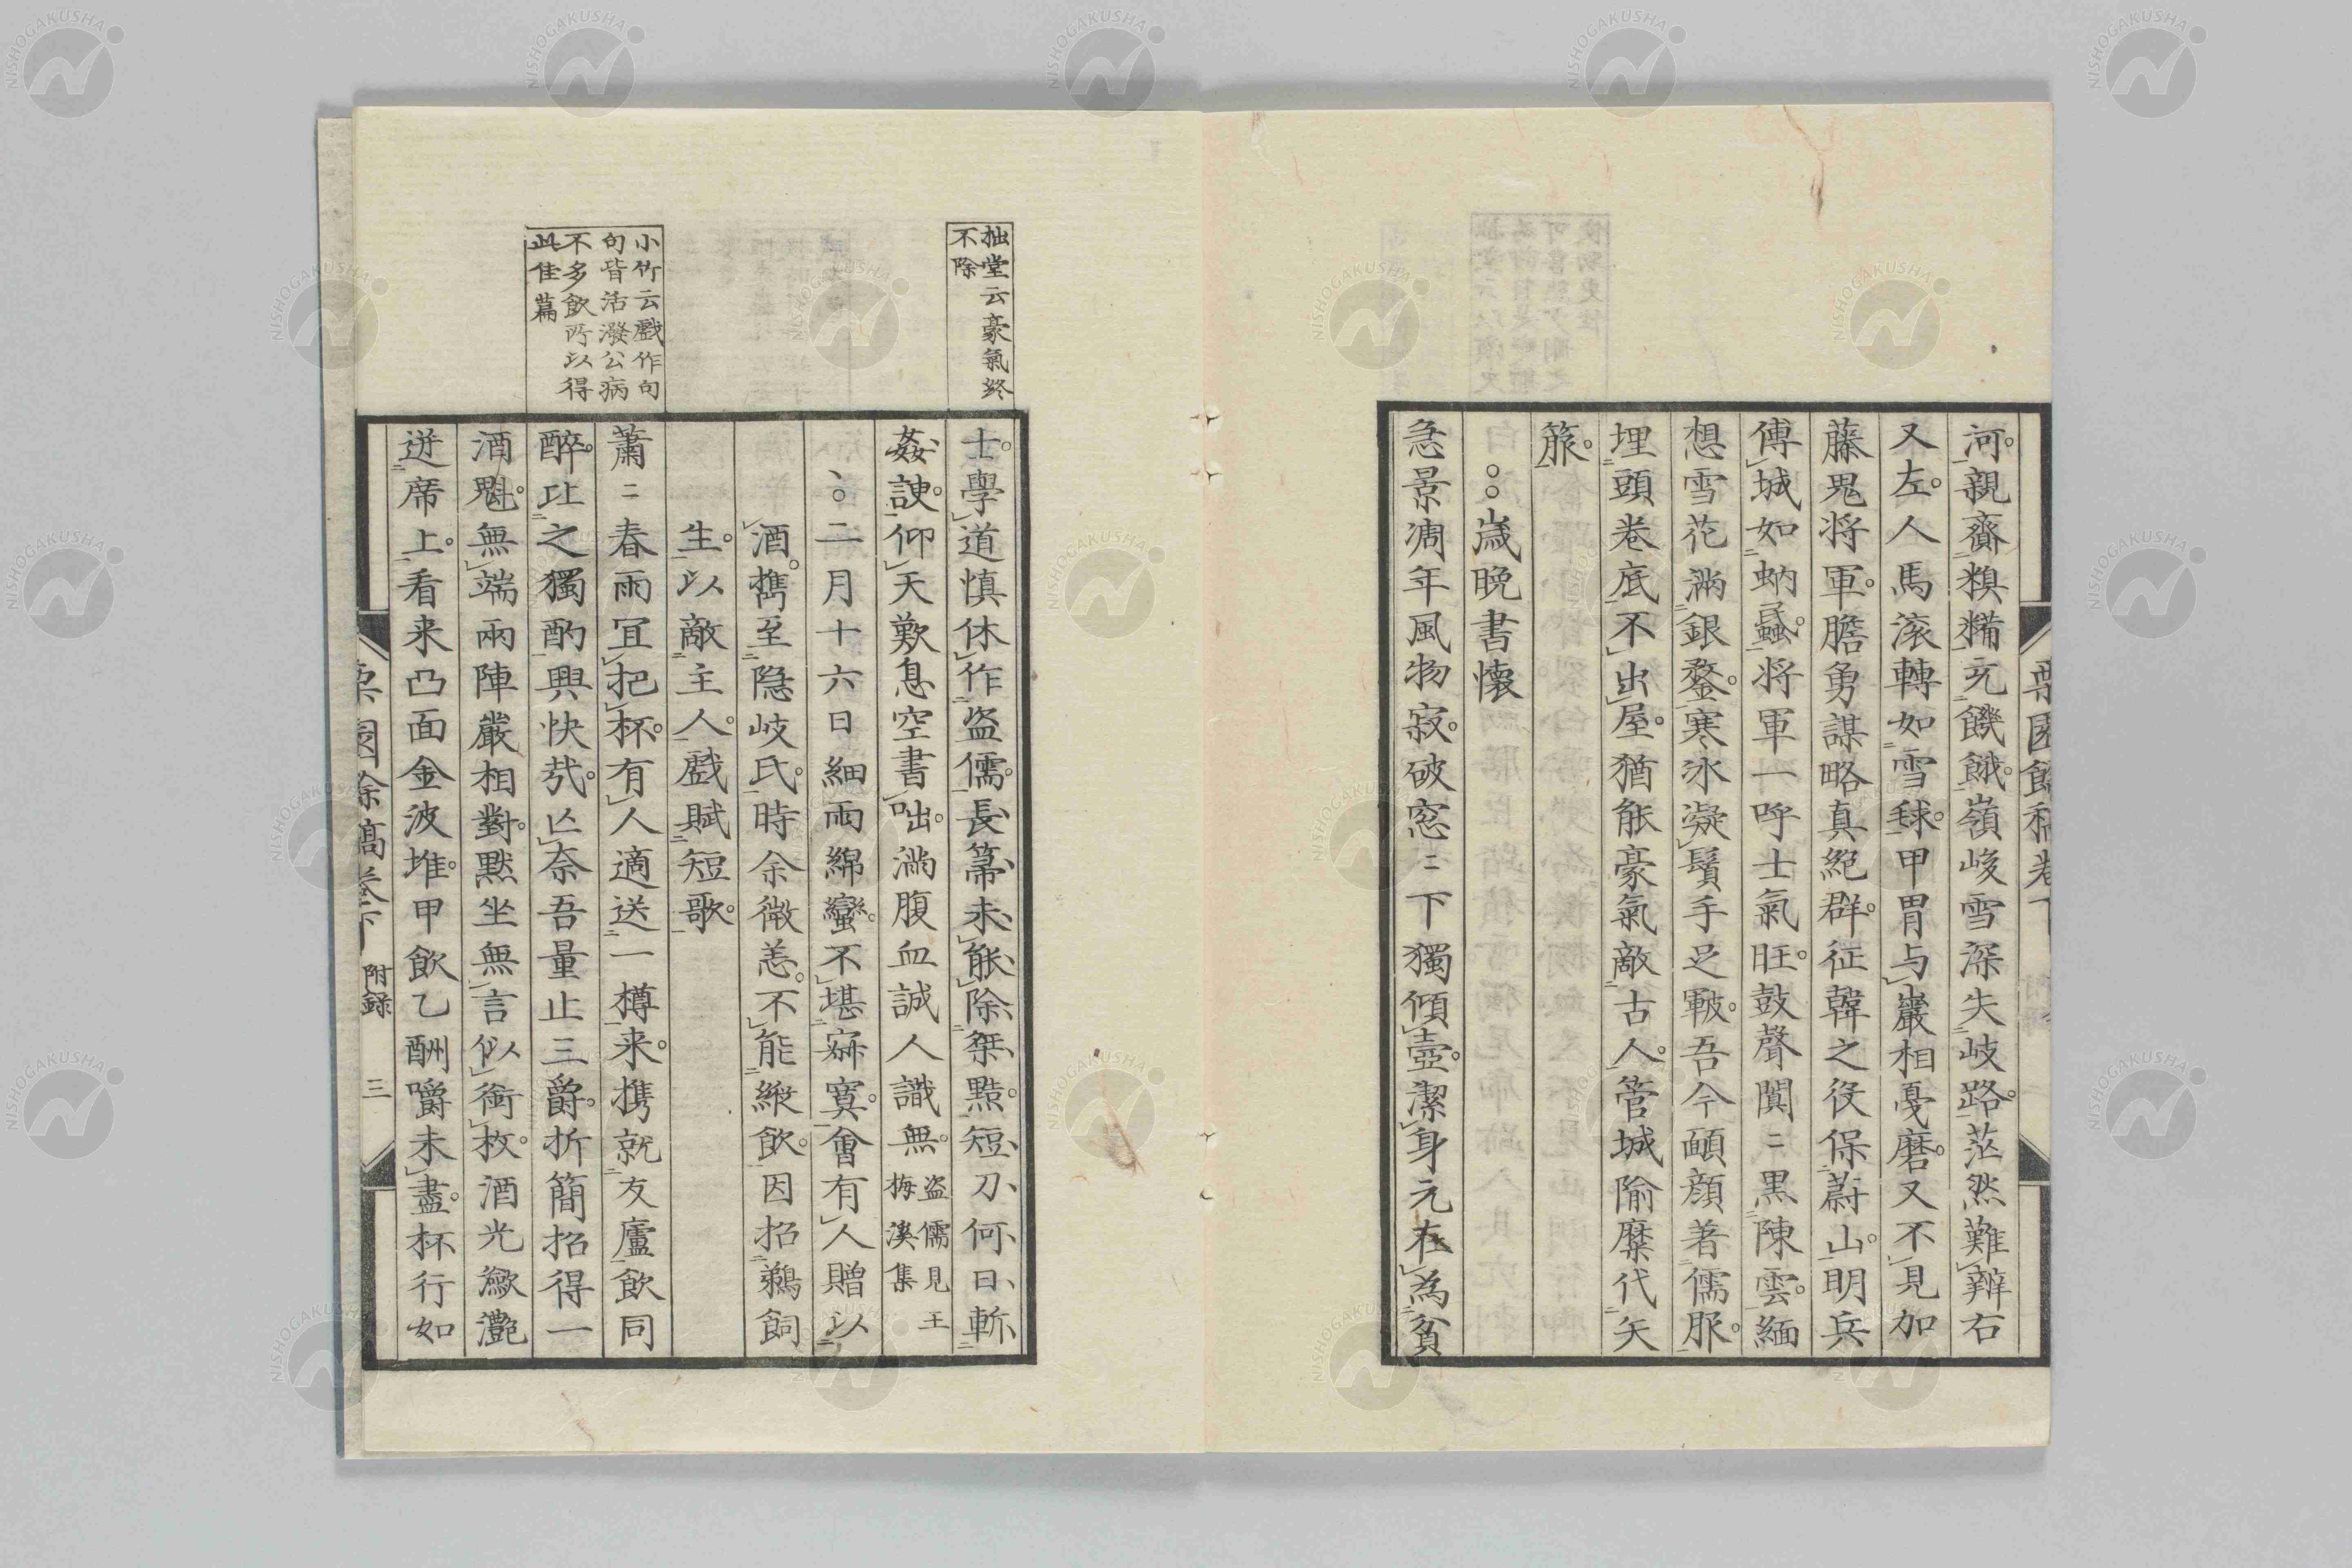 栗園餘稿卷下
河親齎糗糒充饑餓嶺峻雪深失岐路茫然難辨右
又左人馬滚轉如雪毬甲冑与巖相戞磨又不見加
藤鬼将軍膽勇謀略真絕群征韓之役保蔚山明兵
傅城如蚋蟁将軍一呼士氣旺鼓聲闐〻黒陳雲緬
想雪花滿銀鍪寒氷凝鬚手足皸吾今靦顔著儒服
埋頭巻底不出屋猶能豪氣敵古人管城隃糜代矢
箙
歳晚書懷
急景凋年風物寂破窓〻下獨傾壺潔身元在為貧
拙堂云豪氣終
不除
士學道慎休作盗儒長篲未能除桀黠短刀何日斬
姦諛仰天歎息空書咄滿腹血誠人識無盗儒見王
梅溪集
二月十六日細雨綿蠻不堪寂寞會有人贈以
酒攜至隐岐氏時余微恙不能縱飲因招鵜飼
生以敵主人戲賦短歌
小竹云戲作句
句皆活潑公病
不多飲所以得
此佳篇
蕭〻春雨冝把杯有人適送一樽来携就友廬飲同
醉比之獨酌興快哉亡奈吾量止三爵折簡招得一
酒鬼無端兩陣嚴相對黙坐無言似銜枚酒光瀲灔
迸席上看来凸面金波堆甲飲乙酬嚼未盡杯行如
栗園餘稿卷下 附録 三